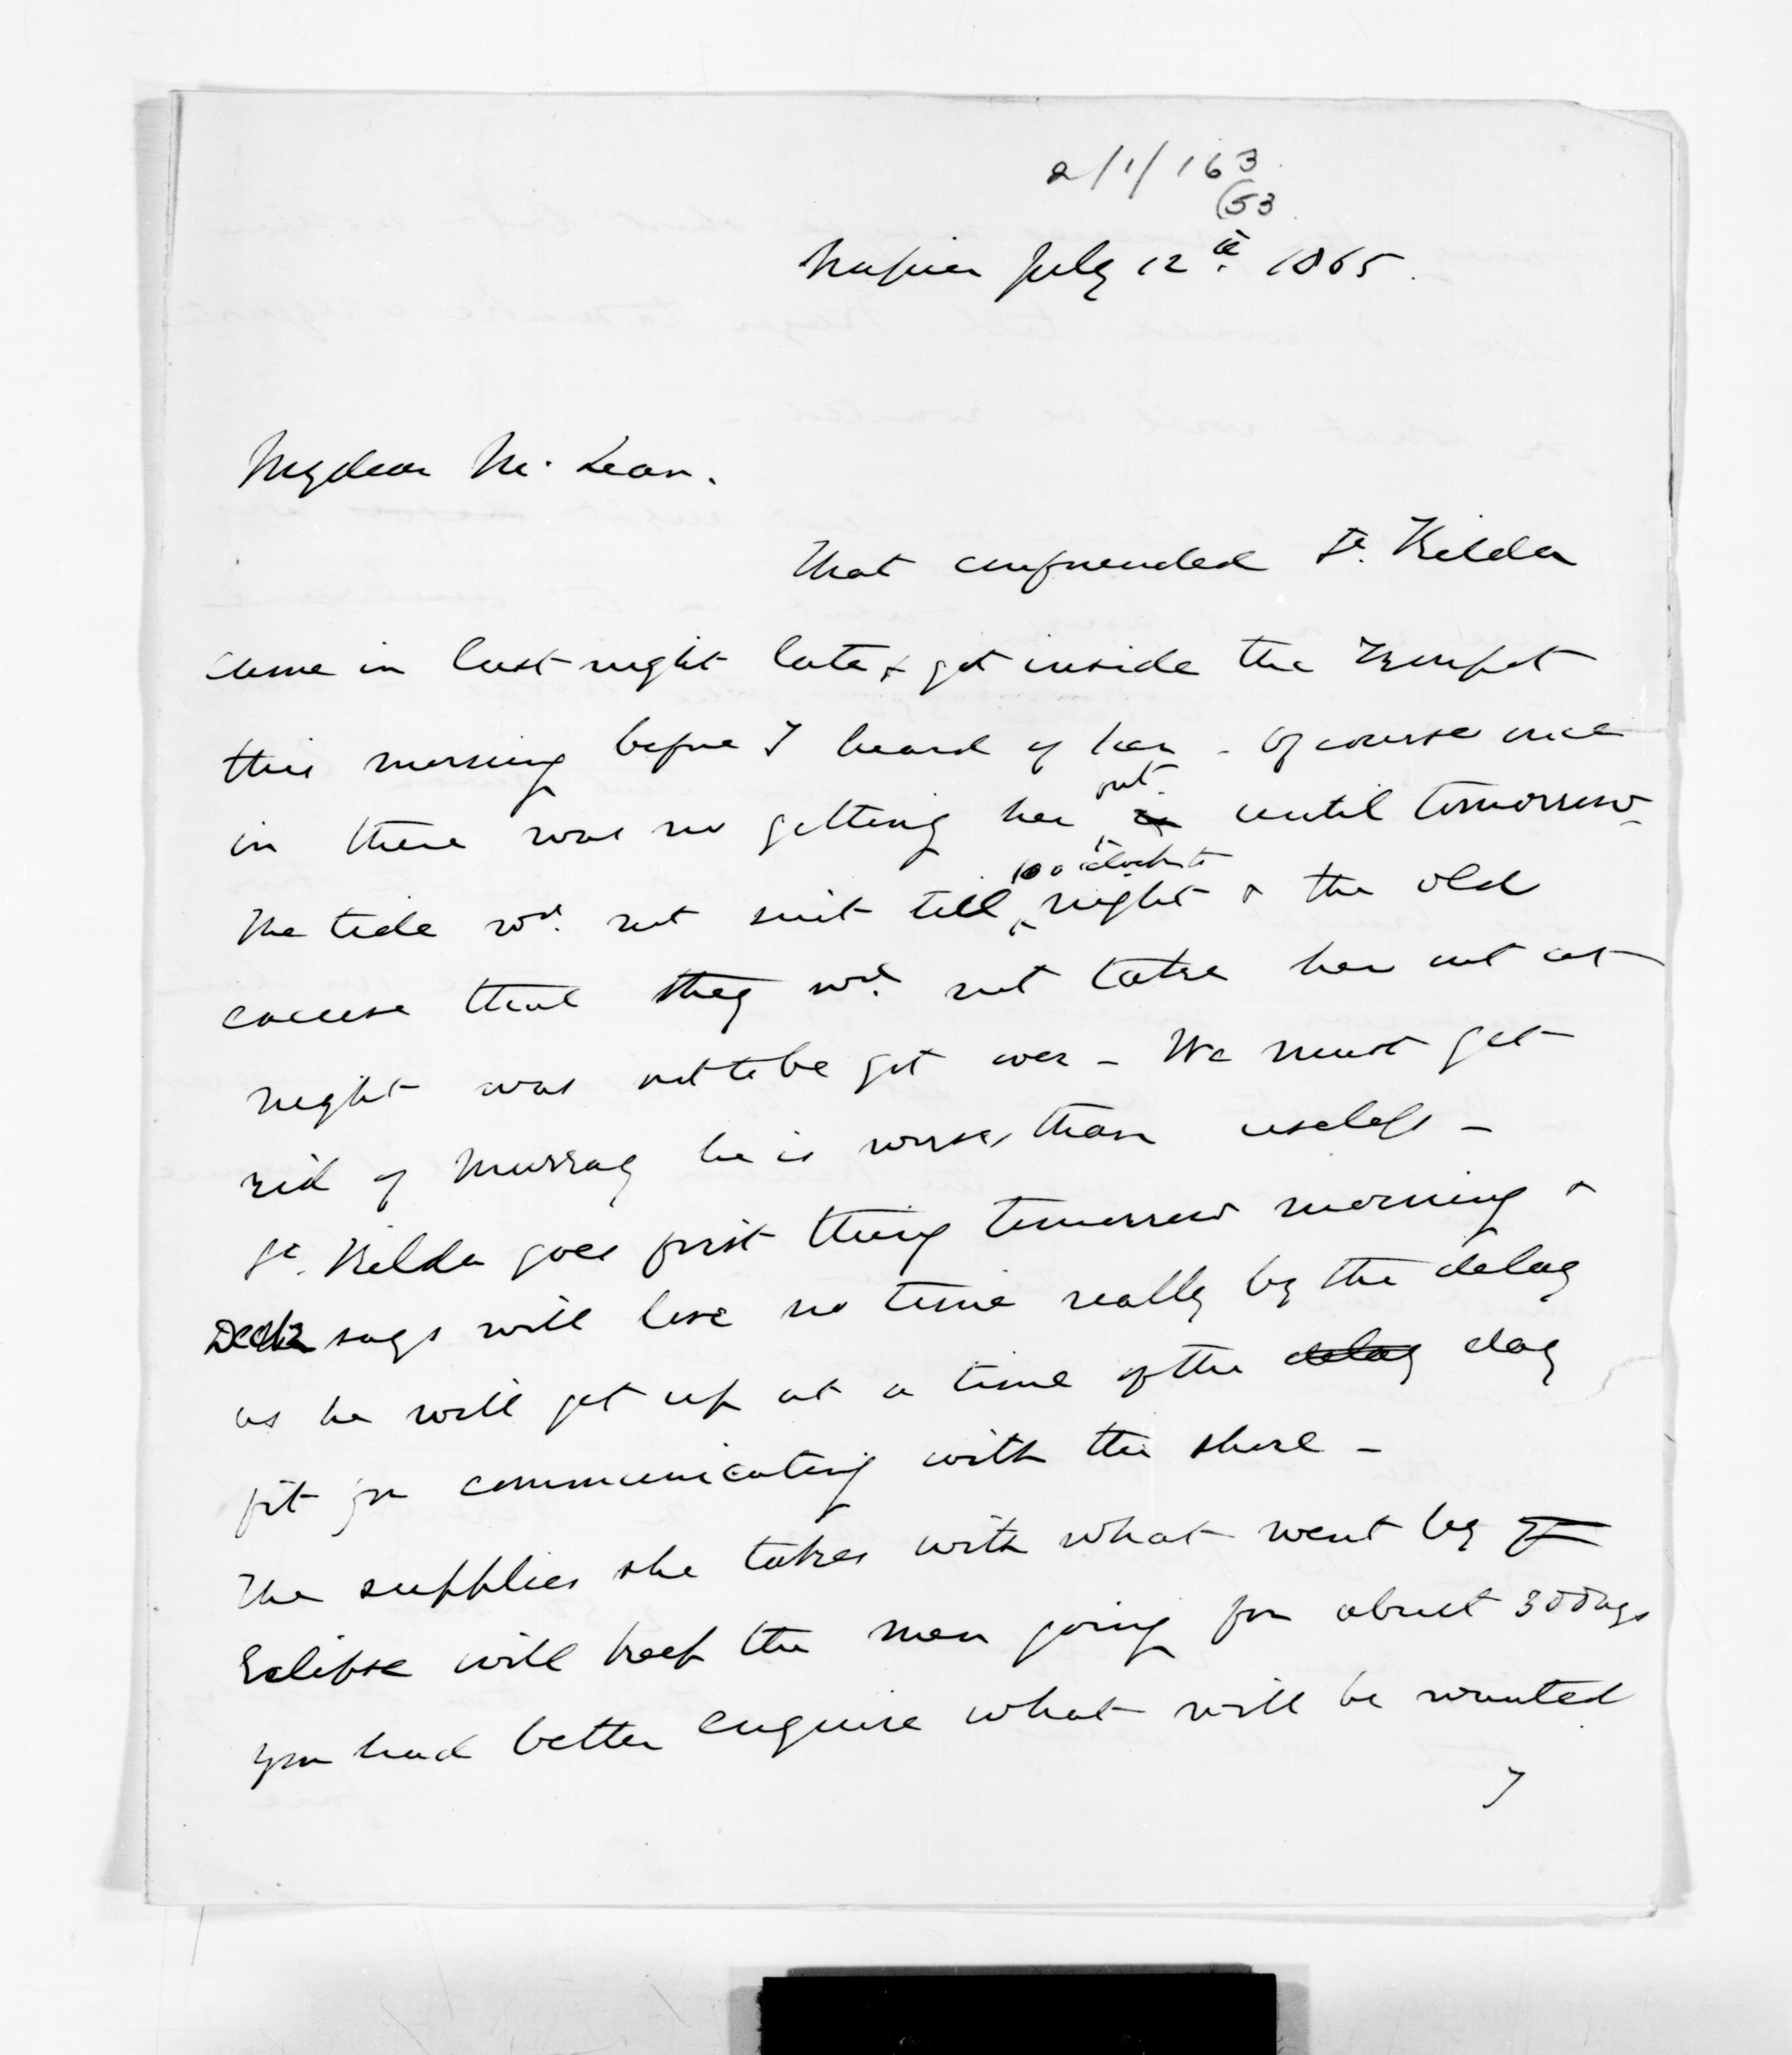 2/1/163
(53
Napier July 12th. 1865.
My dear McLean.
That confounded St. Kilda
came in last night late & got inside the
this morning before I heard of her - Of course once
in there was no getting her out until tomorrow
The tide wd. not suit till 10 o'clock to night & the old
excuse that they wd. not take her out at
night was not to be got over - We must get
rid of Murray he is worse than useless -
St. Kilda goes first thing tomorrow morning &
says will lose no time really by the delay
as he will get up at a time of the delay day
fit for communicating with the shore -
The supplies she takes with what went by
Eclipse will keep the men going for about 30 days
you had better enquire what will be wanted